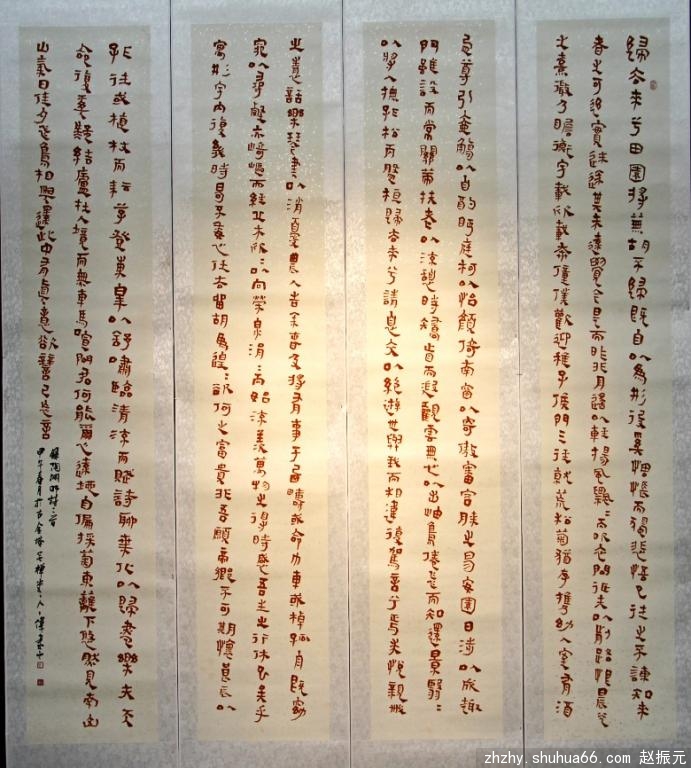 歸去來兮田園將蕪胡不歸既自以為形役奚惆悵而獨悲悟已往之不諫知來
者之可追實迷途其未遠覺今是而昨非舟遙以輕揚風飄飄而吹衣問征夫以前路恨晨光
之熹微乃瞻衡宇載欣載奔僮僕歡迎稚子候門三徑就荒松菊猶存攜幼入室有酒
盈尊引壺觴以自酌眄庭柯以怡顏倚南窗以寄傲審容膝之易安園日涉以成趣
門雖設而常關策扶老以流憩時矯首而遐觀雲無心以出岫鳥倦飛而知還景翳翳
以將入撫孤松而盤桓歸去來兮請息交以絕遊世與我而相違復駕言兮焉求悅親戚
之情話樂琴書以消憂農人告余春及將有事于西疇或命巾車或棹孤舟既窈
窕以尋壑亦崎嶇而經丘木欣欣以向榮泉涓涓而始流羨萬物之得時感吾生之行休已矣乎
寓形宇內復幾時曷不委心任去留胡為遑遑欲何之富貴非吾願帝鄉不可期懷良辰以
孤往或植杖而耘耔登東皋以舒嘯臨清流而賦詩聊乘化以歸盡樂夫天
命復奚疑結廬在人境而無車馬喧問君何能爾心遠地自偏採菊東籬下悠然見南山
山氣日佳夕飛鳥相與還此中有真意欲辯已忘言
錄陶淵明詩二首
甲午春月於
zhzhy.shuhua66.com 赵振元